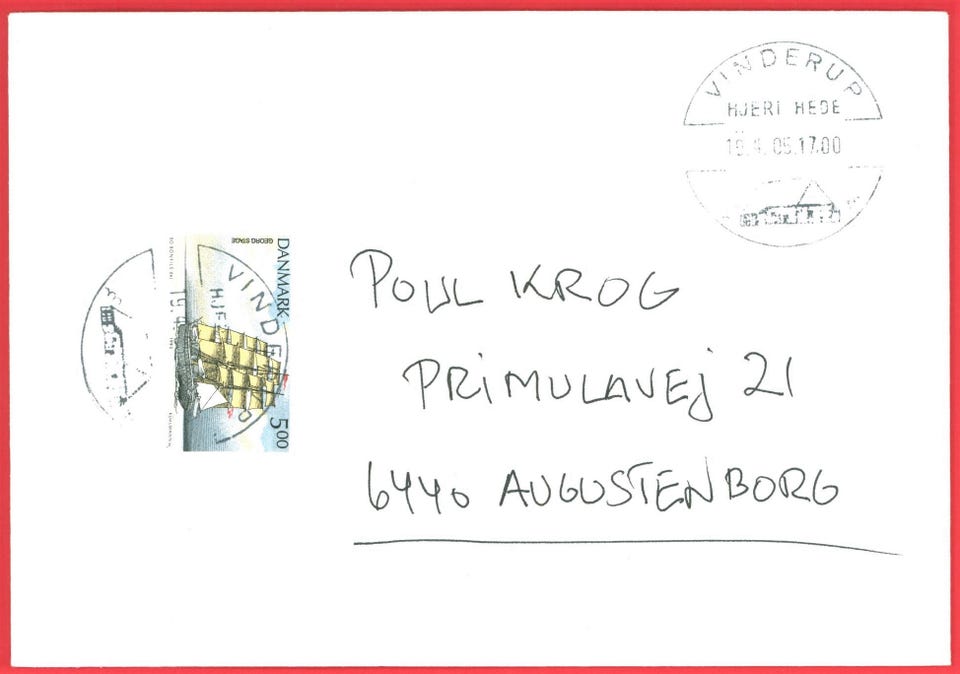 VINDERUP
HJERL HEDE
19.4.05.17.00
DANMARK
GEORG STAGE
5.00
1993
VINDERUP
HJE
19.4
POUL KROG
PRIMULAVEJ 21
6440 AUGUSTENBORG